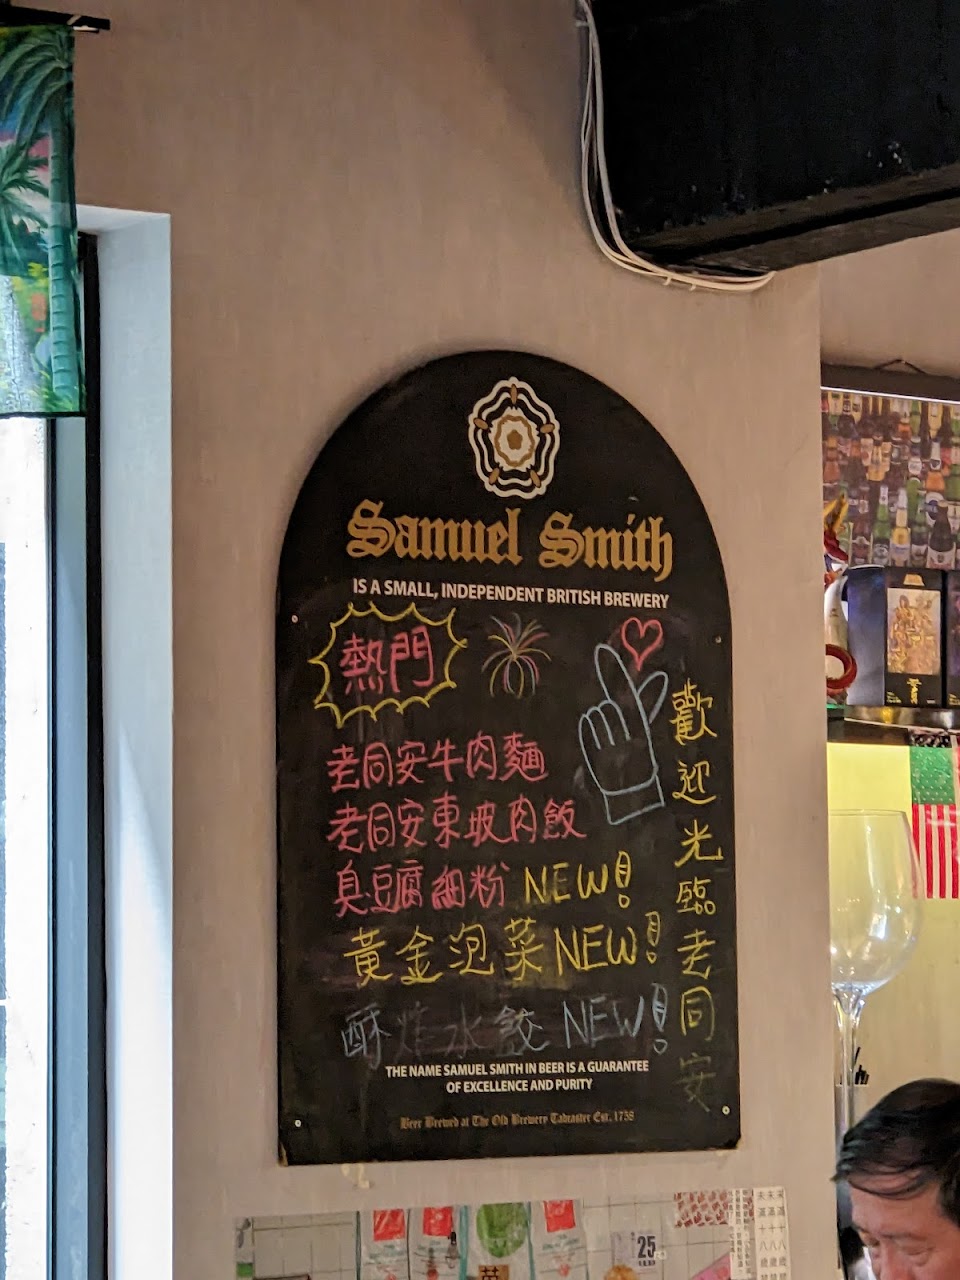 Samuel Smith
IS A SMALL, INDEPENDENT BRITISH BREWERY
熱門
老同安牛肉麵
老同安東坡肉飯
臭豆腐細粉 NEW!
黃金泡菜 NEW!
酥炸水餃 NEW!
歡迎光臨老同安
THE NAME SAMUEL SMITH IN BEER IS A GUARANTEE
OF EXCELLENCE AND PURITY
Beer Brewed at The Old Brewery Tadcaster Est. 1758
25
未滿十八歲
未滿十八歲